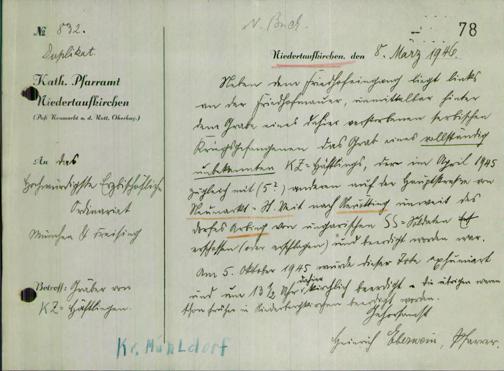 N. Buch
78
№ 832.
Duplikat.
Kath. Pfarramt
Niedertaufkirchen
(Post Neumarkt a. d. Rott, Oberbay.)
An das
Hochwürdigste Erzbischöfliche
Ordinariat
München & Freising
Betreff: Gräber von
KZ-Häftlingen.
Niedertaufkirchen, den 8. März 1946.
Neben dem Friedhofeingang liegt links
an der Friedhofmauer, unmittelbar hinter
dem Grabe eines daher verstorbenen serbischen
Kriegsgefangenen das Grab eines vollständig
unbekannten KZ-Häftlings, der im April 1945
zugleich mit (5?) andern auf der Hauptstraße von
Neumarkt-St. Veit nach unweit des
Dorfes von ungarischen SS-Soldaten
erschossen (oder erschlagen) und beerdigt worden war.
Am 5. Oktober 1945 wurde dieser Tote exhumiert
und um 13½ Uhr kirchlich beerdigt – die übrigen waren
schon früher in beerdigt worden.
Gehorsamst
Heinrich Pfarrer.
Kr. Mühldorf